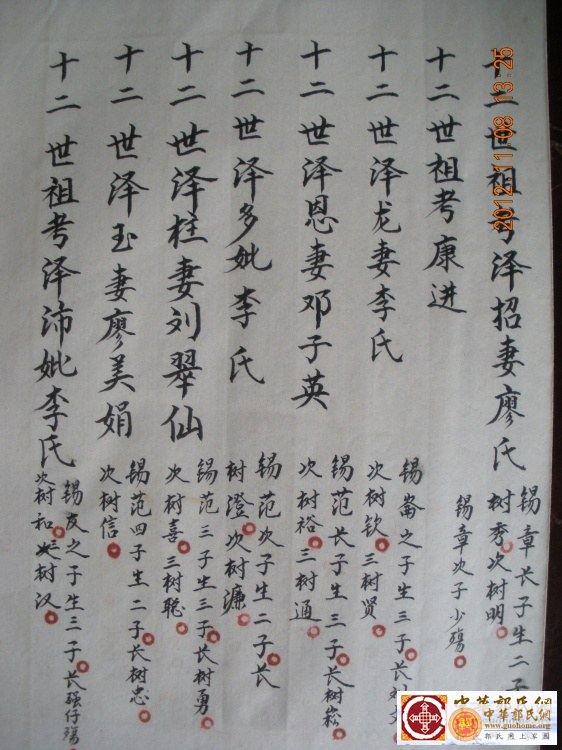 十二世祖考泽招妻廖氏
锡章长子生二子
树秀次树明
十二世祖考康进
锡章次子少殇
十二世泽龙妻李氏
锡嵛之子生三子长树
次树钦三树贤
十二世泽恩妻邓子英
锡范长子生三子长树崧
次树裕三树通
十二世泽多妣李氏
锡范次子生二子长
树澄次树濂
十二世泽柱妻刘翠仙
锡范三子生三子长树勇
次树喜三树聪
十二世泽玉妻廖美娟
锡范四子生二子长树忠
次树信
十二世祖考泽沛妣李氏
锡友之子生三子长强仔殇
次树和 树汉
2012-11-08 13:25
中华郭氏网
中華郭氏網
www.guohome.org
郭氏网上家园